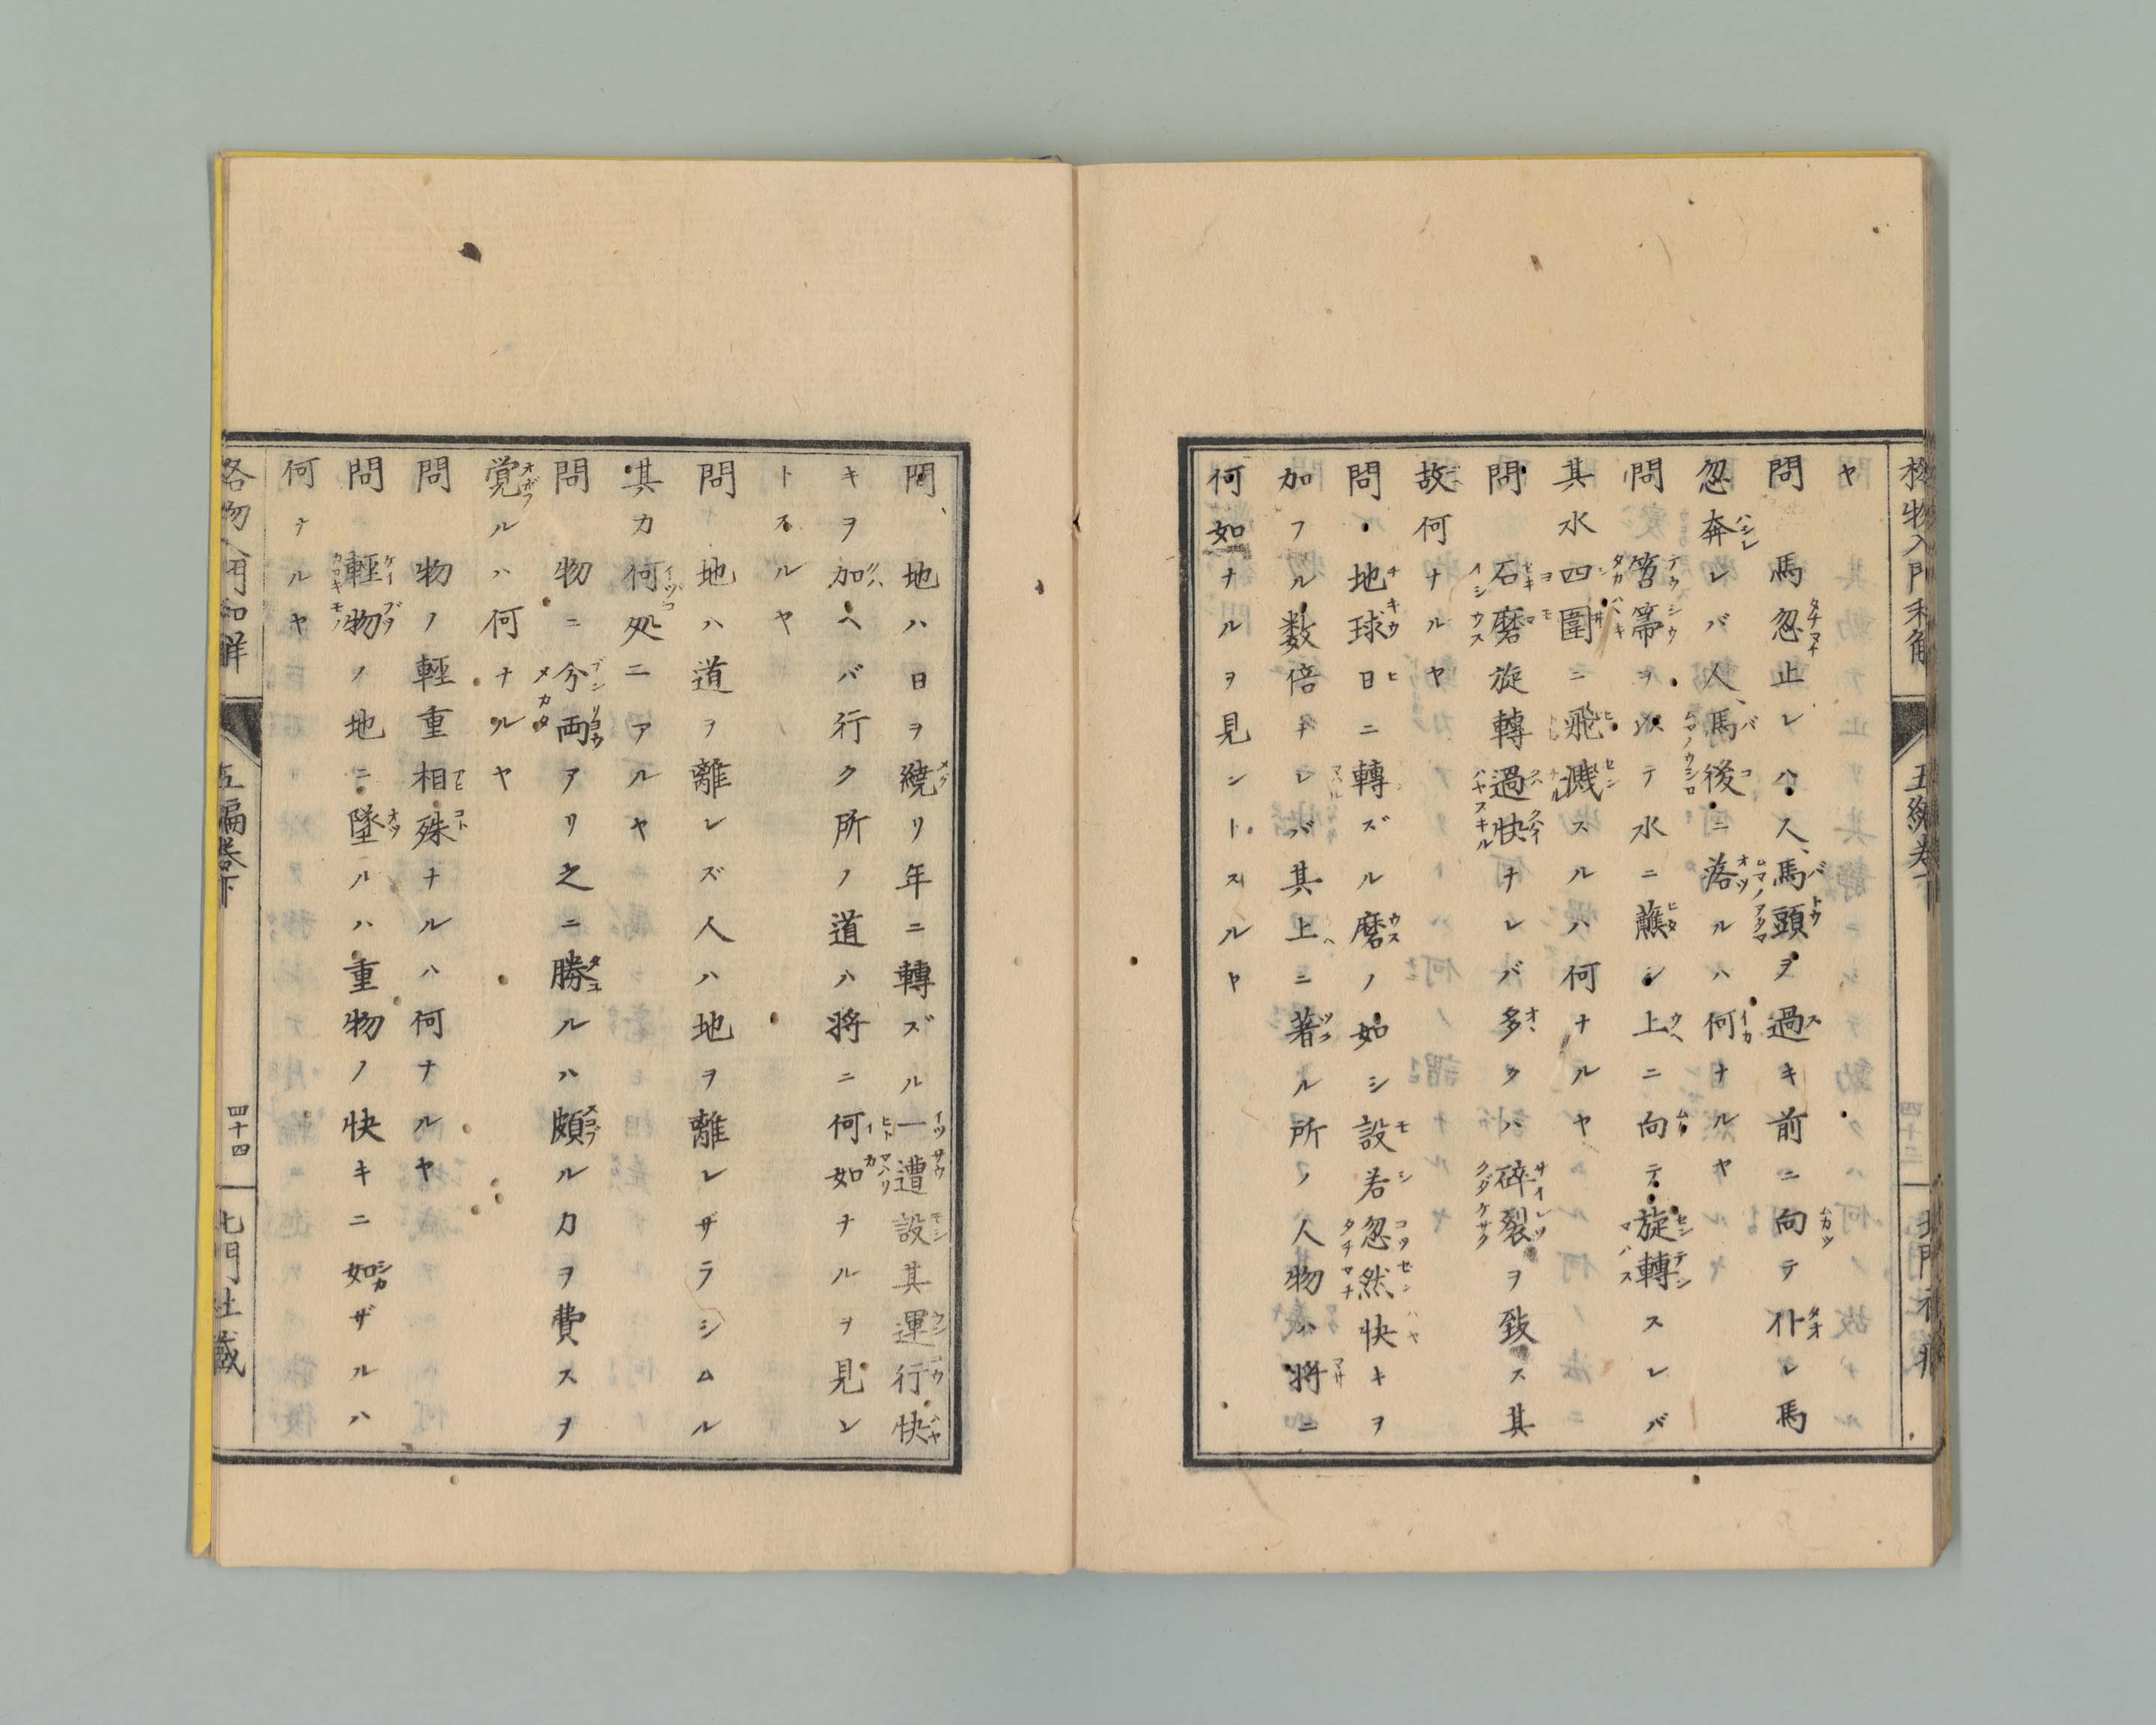 ヤ
問 馬忽止レハ人馬頭ヲ過キ前ニ向テ仆レ馬
忽奔レバ人馬後ニ落ルハ何ナルヤ
問 笤箒ヲ以テ水ニ蘸シ上ニ向テ旋轉スレバ
其水四圍ニ飛濺スルハ何ナルヤ
問 石磨旋轉過快ナレバ多クハ碎裂ヲ致ス其
故何ナルヤ
問 地球日ニ轉ズル磨ノ如シ設若忽然快キヲ
加フル数倍ナレバ其上ニ著ル所ノ人物ハ將ニ
何如ナルヲ見ントスルヤ
問 地ハ日ヲ繞リ年ニ轉ズル一遭設其運行快
キヲ加ヘバ行ク所ノ道ハ將ニ何如ナルヲ見ン
トスルヤ
問 地ハ道ヲ離レズ人ハ地ヲ離レザラシムル
其力何処ニアルヤ
問 物ニ分両アリ之ニ勝ルハ頗ル力ヲ費スヲ
覚ルハ何ナルヤ
問 物ノ輕重相殊ナルハ何ナルヤ
問 輕物ノ地ニ墜ルハ重物ノ快キニ如ザルハ
何ナルヤ
格物入門和解 五編巻下 四十四 北門社蔵